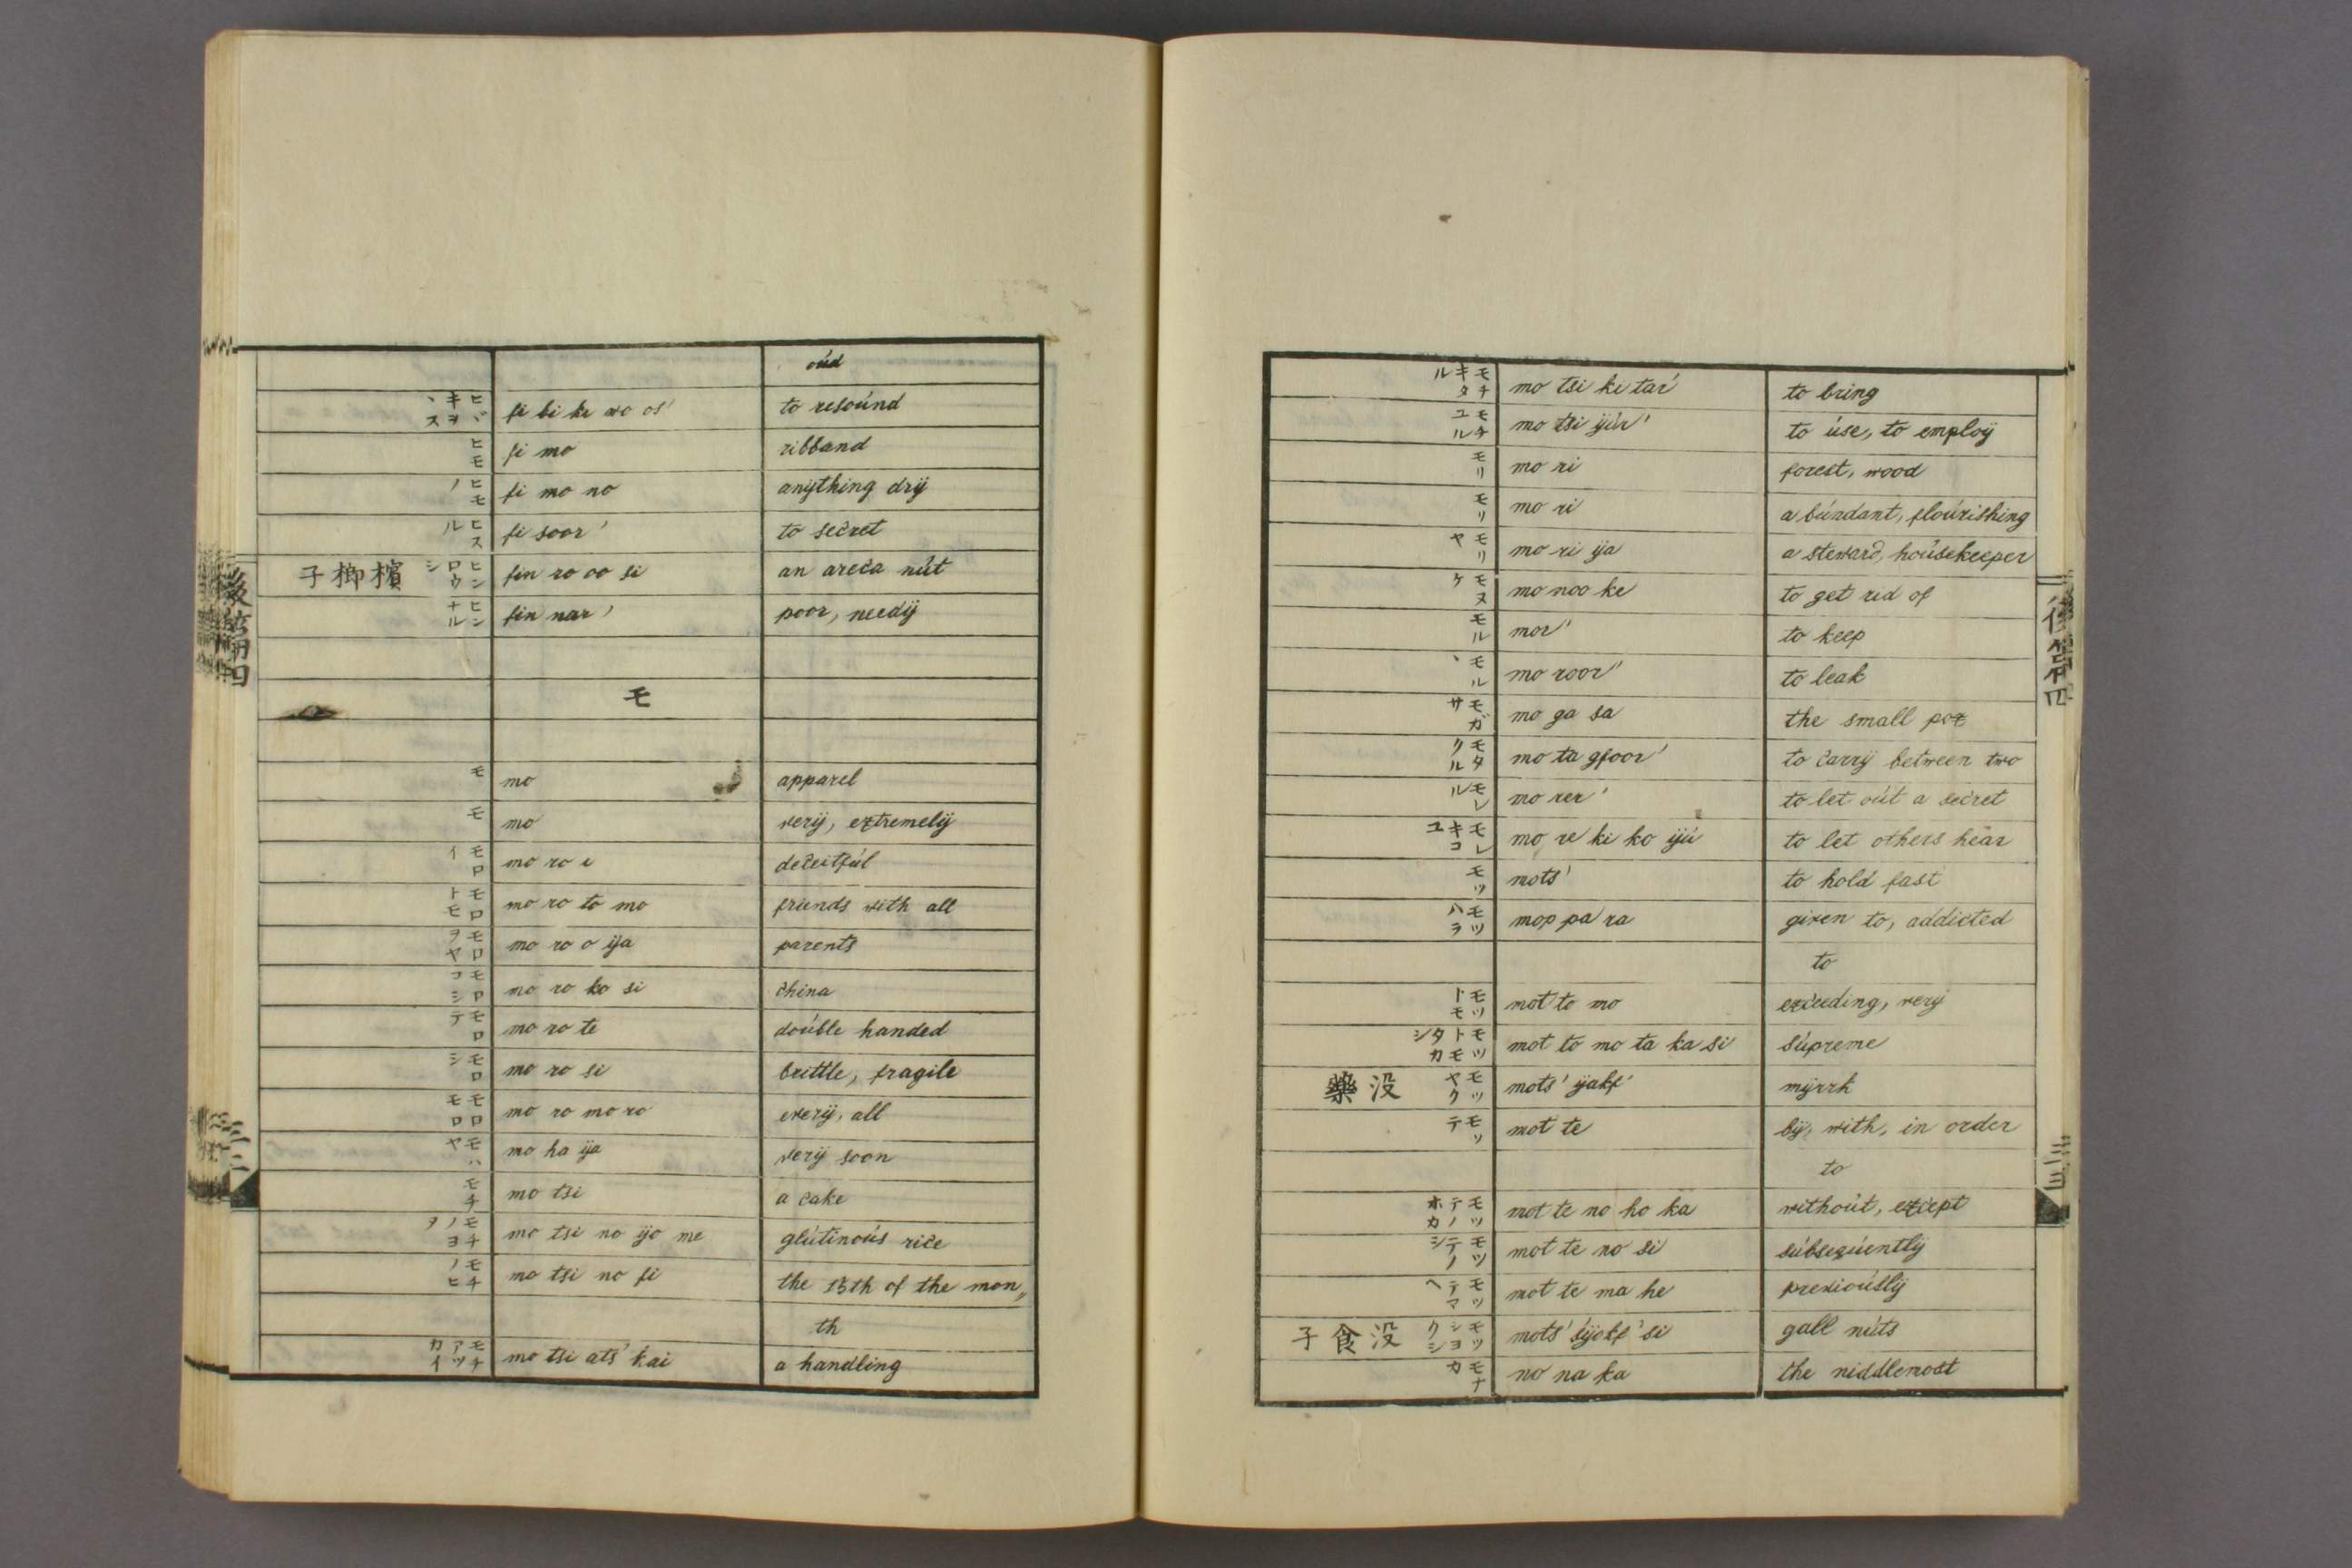 oúd
ヒヾキヲヽス fi bi ki wo os' to resoúnd
ヒモ fi mo ribband
ヒモノ fi mo no anijthing drij
ヒスル fi soor' to secret
檳榔子 ヒンロウシ fin ro oo si an areca nút
ヒンナル fin nar' poor, needij
モ
モ mo apparel
モ mo verij, extremelij
モロイ mo ro i deceitfúl
モロトモ mo ro to mo friends with all
モロヲヤ mo ro o ija parents
モロコシ mo ro ko si china
モロテ mo ro te doúble handed
モロシ mo ro si brittle, fragile
モロモロ mo ro mo ro everij, all
モハヤ mo ha ija verij soon
モチ mo tsi a cake
モチノヨヲ mo tsi no ijo me glútinoús rice
モチノヒ mo tsi no fi the 15th of the mon„
th
モチアツカイ mo tsi ats' kai a handling
後篇四
モチキタル mo tsi ki tar' to bring
モチユル mo tsi ijúr' to úse, to emploij
モリ mo ri forest, wood
モリ mo ri abúndant, floúrishing
モリヤ mo ri ija a steward, hoúsekeeper
モヌケ mo noo ke to get rid of
モル mor' to keep
モルヽ mo roor' to leak
モガサ mo ga sa the small pox
モタクル mo ta gfoor' to carrij between two
モレル mo rer' to let oút a secret
モレキコユ mo re ki ko ijú to let others hear
モツ mots' to hold fast
モツハラ mop pa ra given to, addicted
to
モツトモ mot to mo exceeding, verij
モツトモタカシ mot to mo ta ka si súpreme
没藥 モツヤク mots' ijakf' mijrrh
モツテ mot te bij, with, in order
to
モツテノホカ mot te no ho ka withoút, except
モツテノシ mot te no si súbseqúentlij
モツテマヘ mot te ma he previoúslij
没食子 モツシヨクシ mots' sijokf' si gall núts
モナカ no na ka the niddlemost